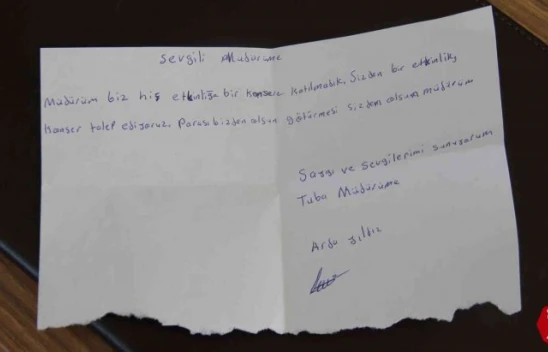 Sevgili Müdürüme
Müdürüm biz hiş etkinliğe bir konsere katılmadık. Sizden bir etkinlik,
konser talep ediyoruz. Parası bizden olsun götürmesi sizden olsun müdürüm
Saygı ve Sevgilerimi sunuyorum
Tuba Müdürüme
Arzu yıldız